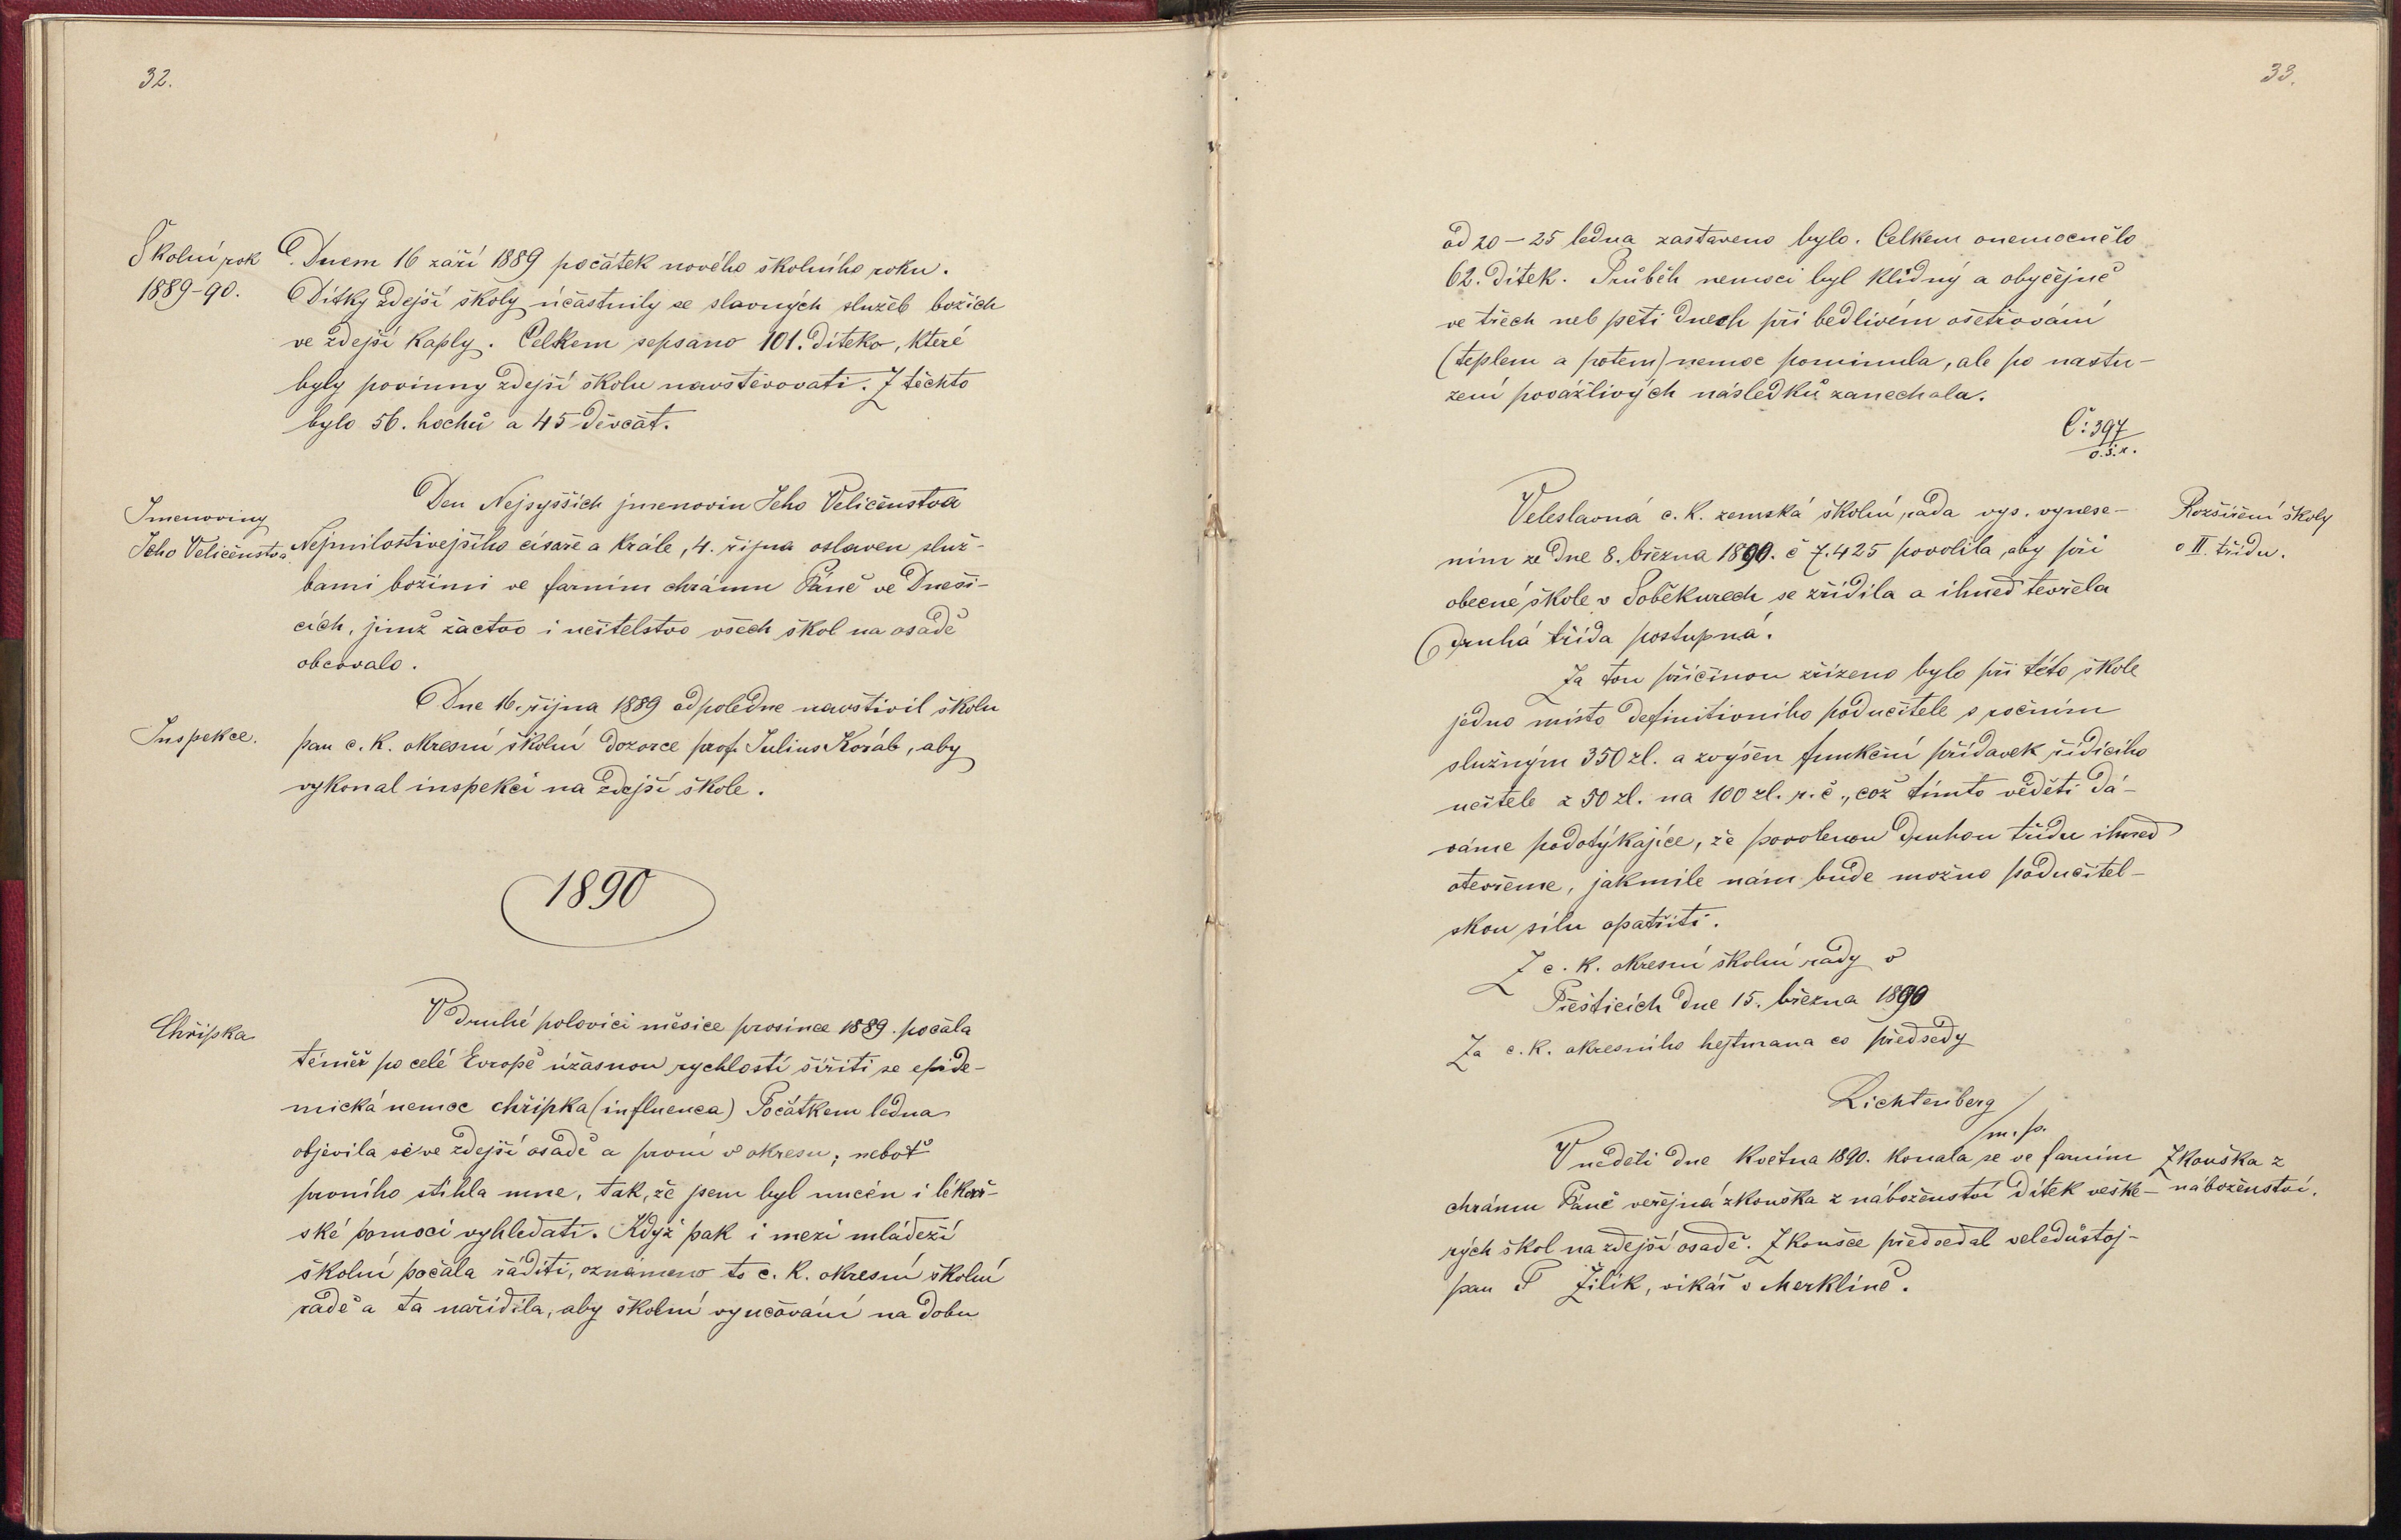 32.
Školní rok
1889-90.
Dnem 16 září 1889 počátek nového školního roku.
Dítky zdejší školy účastnily se slavných služeb božích
ve zdejší kaply. Celkem sepsáno 101. díteko, které
byly povinny zdejší školu navštěvovati. Z těchto
bylo 56. hochů a 45 děvčat.
Jmenoviny
Jeho Veličenstva
Den Nejvyšších jmenovin Jeho Veličenstva
Nejmilostivejšího císaře a krále, 4. října oslaven služ-
bami božími ve farním chrámu Páně ve Dneši-
cích, jimž žactvo i učitelstvo všech škol na osadě
obcovalo.
Inspekce.
Dne 16. října 1889 odpoledne navštívil školu
pan c. k. okresní školní dozorce prof. Julius Koráb, aby
vykonal inspekci na zdejší škole.
1890
Chřipka
V druhé polovici měsíce prosince 1889. počala
téměř po celé Evropě úžasnou rychlostí šířiti se epide-
mická nemoc chřipka (influenca) Počátkem ledna
objevila se ve zdejší osadě a první v okresu; neboť
prvního stihla mne, tak, že jsem byl nucen i lékař-
ské pomoci vyhledati. Když pak i mezi mládeží
školní počala řáditi, oznámeno to c. k. okresní školní
radě a ta nařídila, aby školní vyučování na dobu
33.
od 20-25 ledna zastaveno bylo. Celkem onemocnělo
62. dítek. Průběh nemoci byl klidný a obyčejně
ve třech neb pěti dnech při bedlivém ošetřování
(teplem a potem) nemoc pominula, ale po nastu-
zení povážlivých následků zanechala.
Č: 397
o.š.r.
Rozšíření školy
o II. třídu.
Veleslavná c. k. zemská školní rada vys. vynese-
ním ze dne 8. března 1890. č 7.425 povolila, aby při
obecné škole v Soběkurech se zřídila a ihned tevřela
druhá třída postupná.
Za tou příčinou zřízeno bylo při této škole
jedno místo definitivního podučitele s ročním
služným 350 zl. a zvýšen funkční přídavek řídícího
učitele z 50 zl. na 100 zl. r. č., což tímto věděti dá-
váme podotýkajíce, že povolenou druhou třídu ihned
otevřeme, jakmile nám bude možno podučitel-
skou sílu opatřiti.
Z c. k. okresní školní rady v
Přešticích dne 15. března 1890
Za c. k. okresního hejtmana co předsedy
Lichtenberg
m. p.
Zkouška z
náboženství.
V neděli dne května 1890. konala se ve farním
chrámu Páně veřejná zkouška z náboženství dítek veške-
rých škol na zdejší osadě. Zkoušce předsedal veledůstoj-
pan F Žilík, vikář v Merklíně.